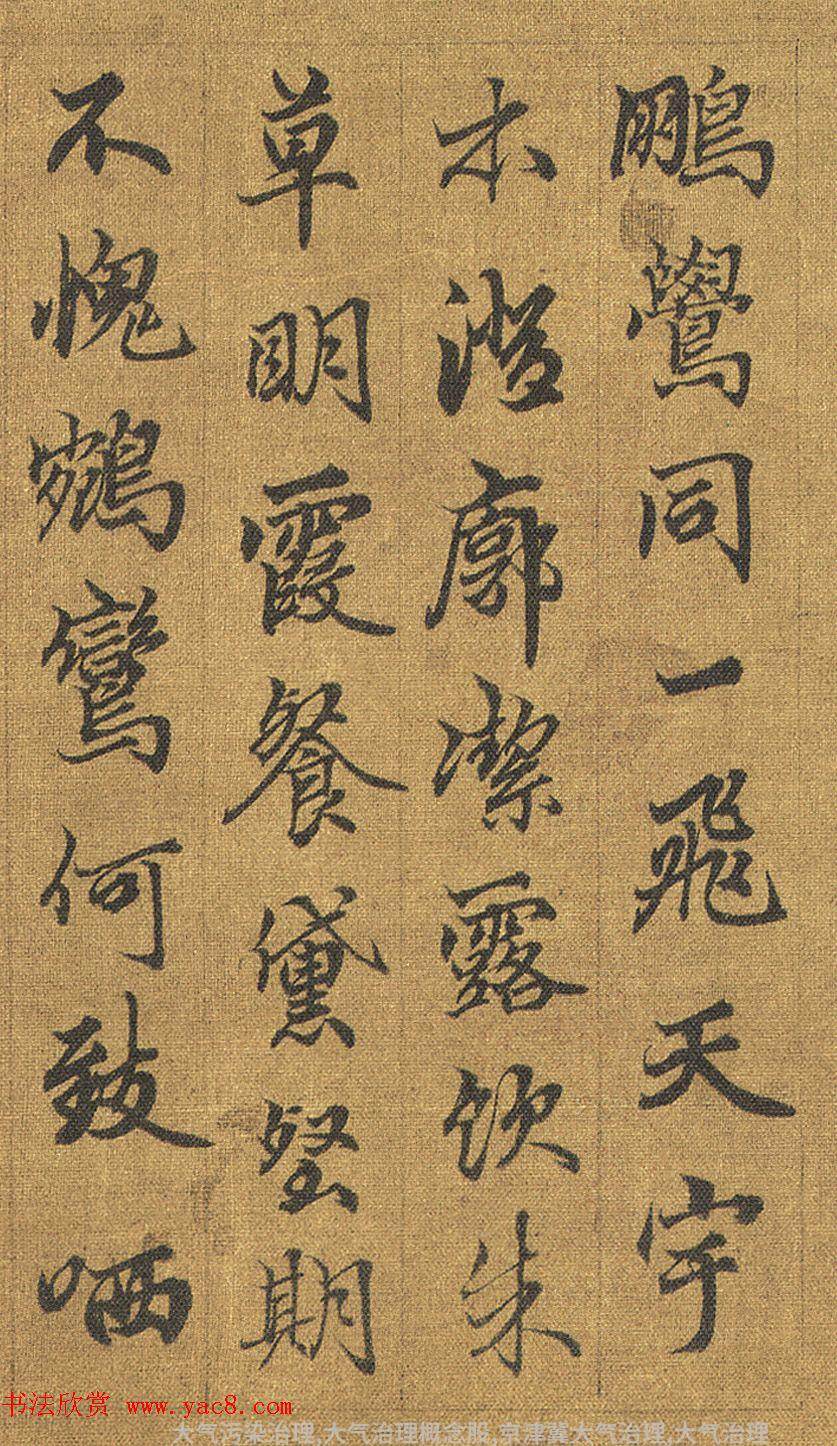 鵬鷽同一飛天宇
本澄廓潔露飲朱
草明霞餐黛壑期
不愧鵷鸞何致哂
书法欣赏 www.yac8.com
大气污染治理,大气治理概念股,京津冀大气治理,大气治理